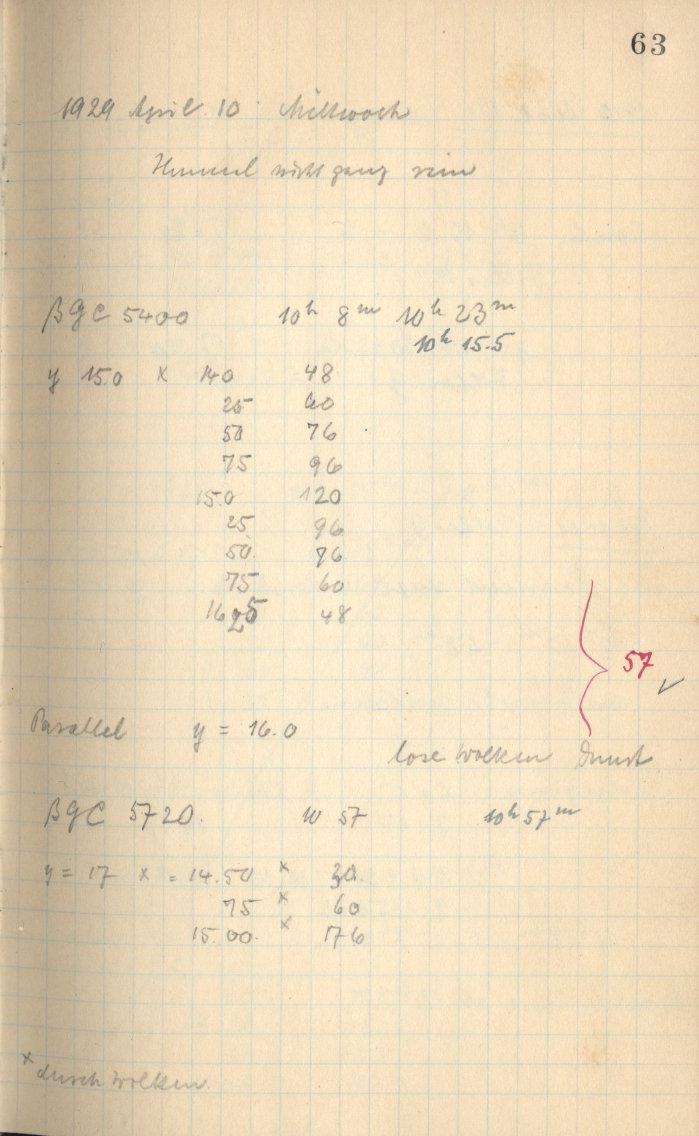 63
1929 April 10 Mittwoch
Himmel nicht ganz rein
βGC 5400 10h 8m 10h 23m
10h 15.5
y 15.0 x 140 48
25 60
50 76
75 96
15.0 120
25 96
50. 76
75 60
1625 48
57 ✓
Parallel y = 16.0
lose Wolken Dunst
βGC 5720. 10 57 10h 57m
y = 17 x = 14.50 x 30.
75 x 60
15.00. x 176
x durch Wolken.